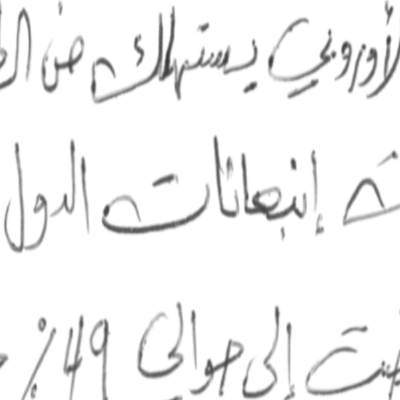 الأوروبي يستهلك من
إنبعاثات الدول
إلى حوالي 49٪